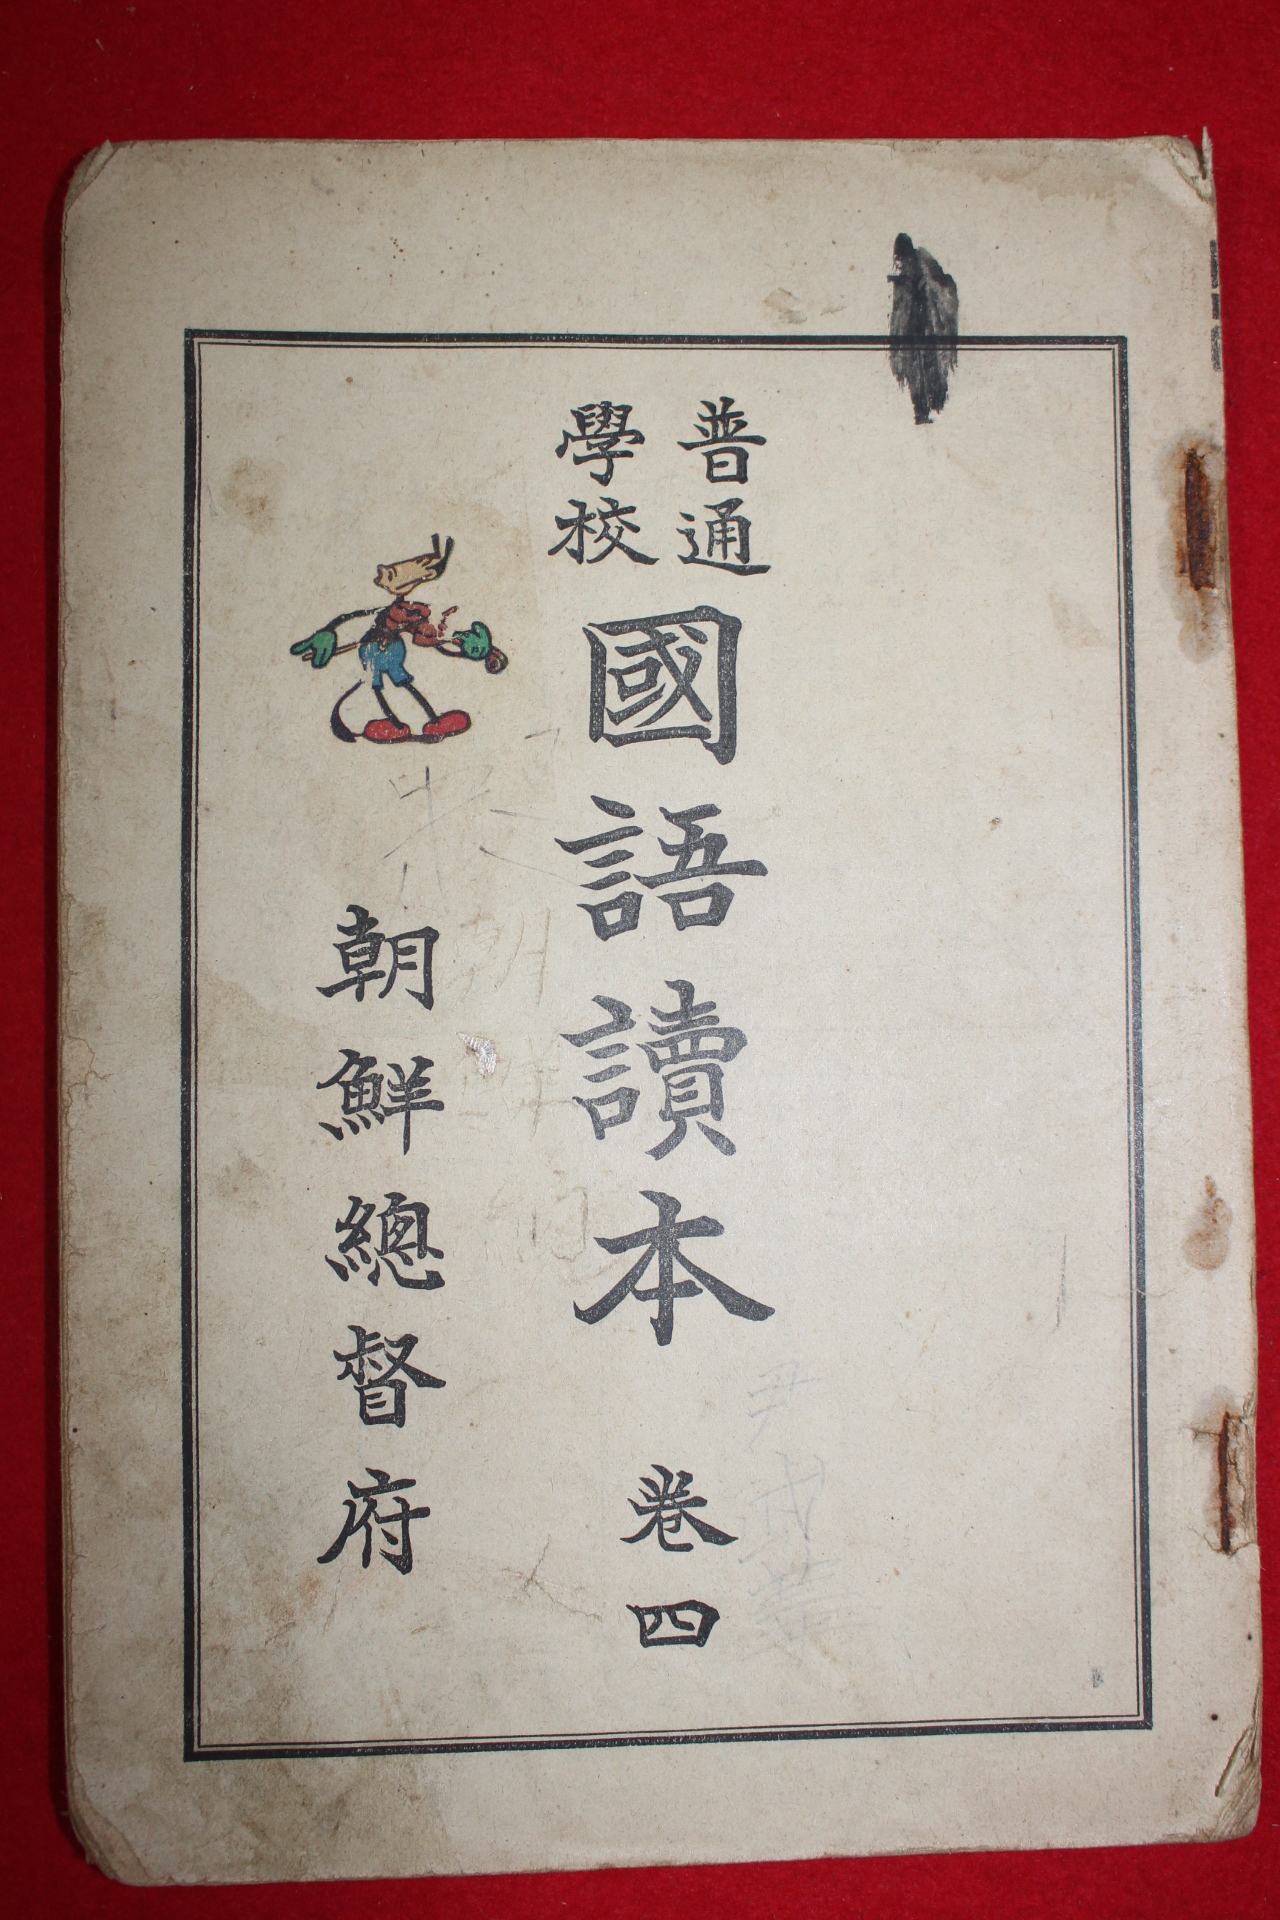 普通
學校
國語讀本 卷四
朝鮮總督府